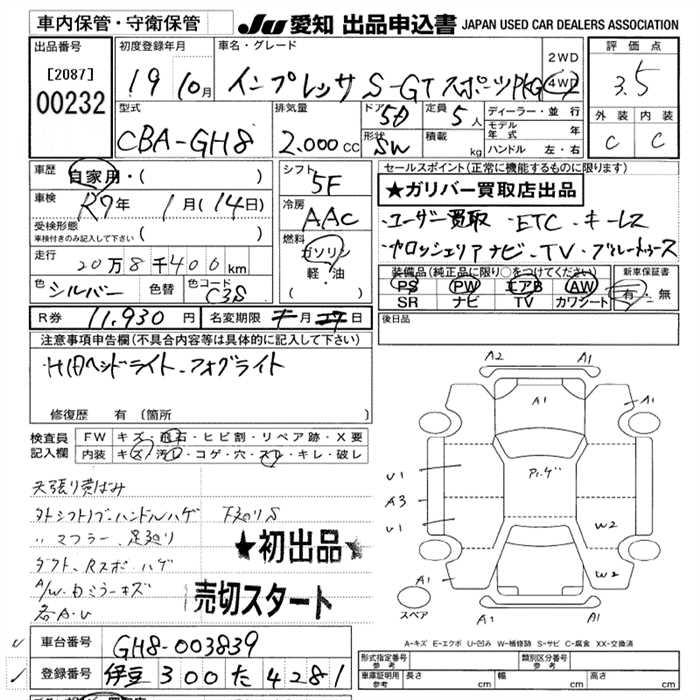 車内保管・守衛保管 JU 愛知 出品申込書 JAPAN USED CAR DEALERS ASSOCIATION
出品番号 [2087] 00232
初度登録年月 19 10月
車名・グレード インプレッサ S-GTスポーツPKG 2WD 4WD
評価点 3.5
型式 CBA-GH8
排気量 2.000cc
ドア 5D 形状 SW
定員 5人 積載 kg
ディーラー・並行
モデル年式 年
ハンドル 左・右
外装 C 内装 C
車歴 自家用・( )
車検 R7年 1月(14日)
受検形態
車検付きのみ記入して下さい ( )
走行 20万8千400km
色 シルバー 色替 色コード C3S
シフト 5F
冷房 AAC
燃料 ガソリン 軽・油
セールスポイント(正常に機能するものに限ります)
★ガリバー買取店出品
・ユーザー買取 ・ETC ・キーレス
・カロッツェリアナビ・TV・ブルートゥース
装備品(純正品に限り○をつけてください) 新車保証書
PS PW エアB AW 有・無
SR ナビ TV カワシート
R券 11,930円 名変期限 月 日
後日品
注意事項申告欄(不具合内容等は具体的に記入して下さい)
・HIDヘッドライト・フォグライト
修復歴 有 (箇所
検査員記入欄 FW キズ・飛石・ヒビ割・リペア跡・X要
内装 キズ・汚レ・コゲ・穴・スレ・キレ・破レ
天張り黄ばみ
社外シフトノブ・ハンドルハゲ 下廻りS
〃 マフラー、足廻り
ダクト、Rスポ・ハゲ
A/W・Dミラーキズ
各A・U
★初出品★
売切スタート
A2 A1
A1 A1
U1 Pルーゲ
A3
U1 W2
W2
A1 A1
スペア
A-キズ E-エクボ U-凹み W-補修跡 S-サビ C-腐食 XX-交換済
車台番号 GH8-003839
登録番号 伊豆 300 た 4281
形式指定番号 参考 類別区分番号 参考
車庫証明用 参考 長さ cm 幅 cm 高さ cm